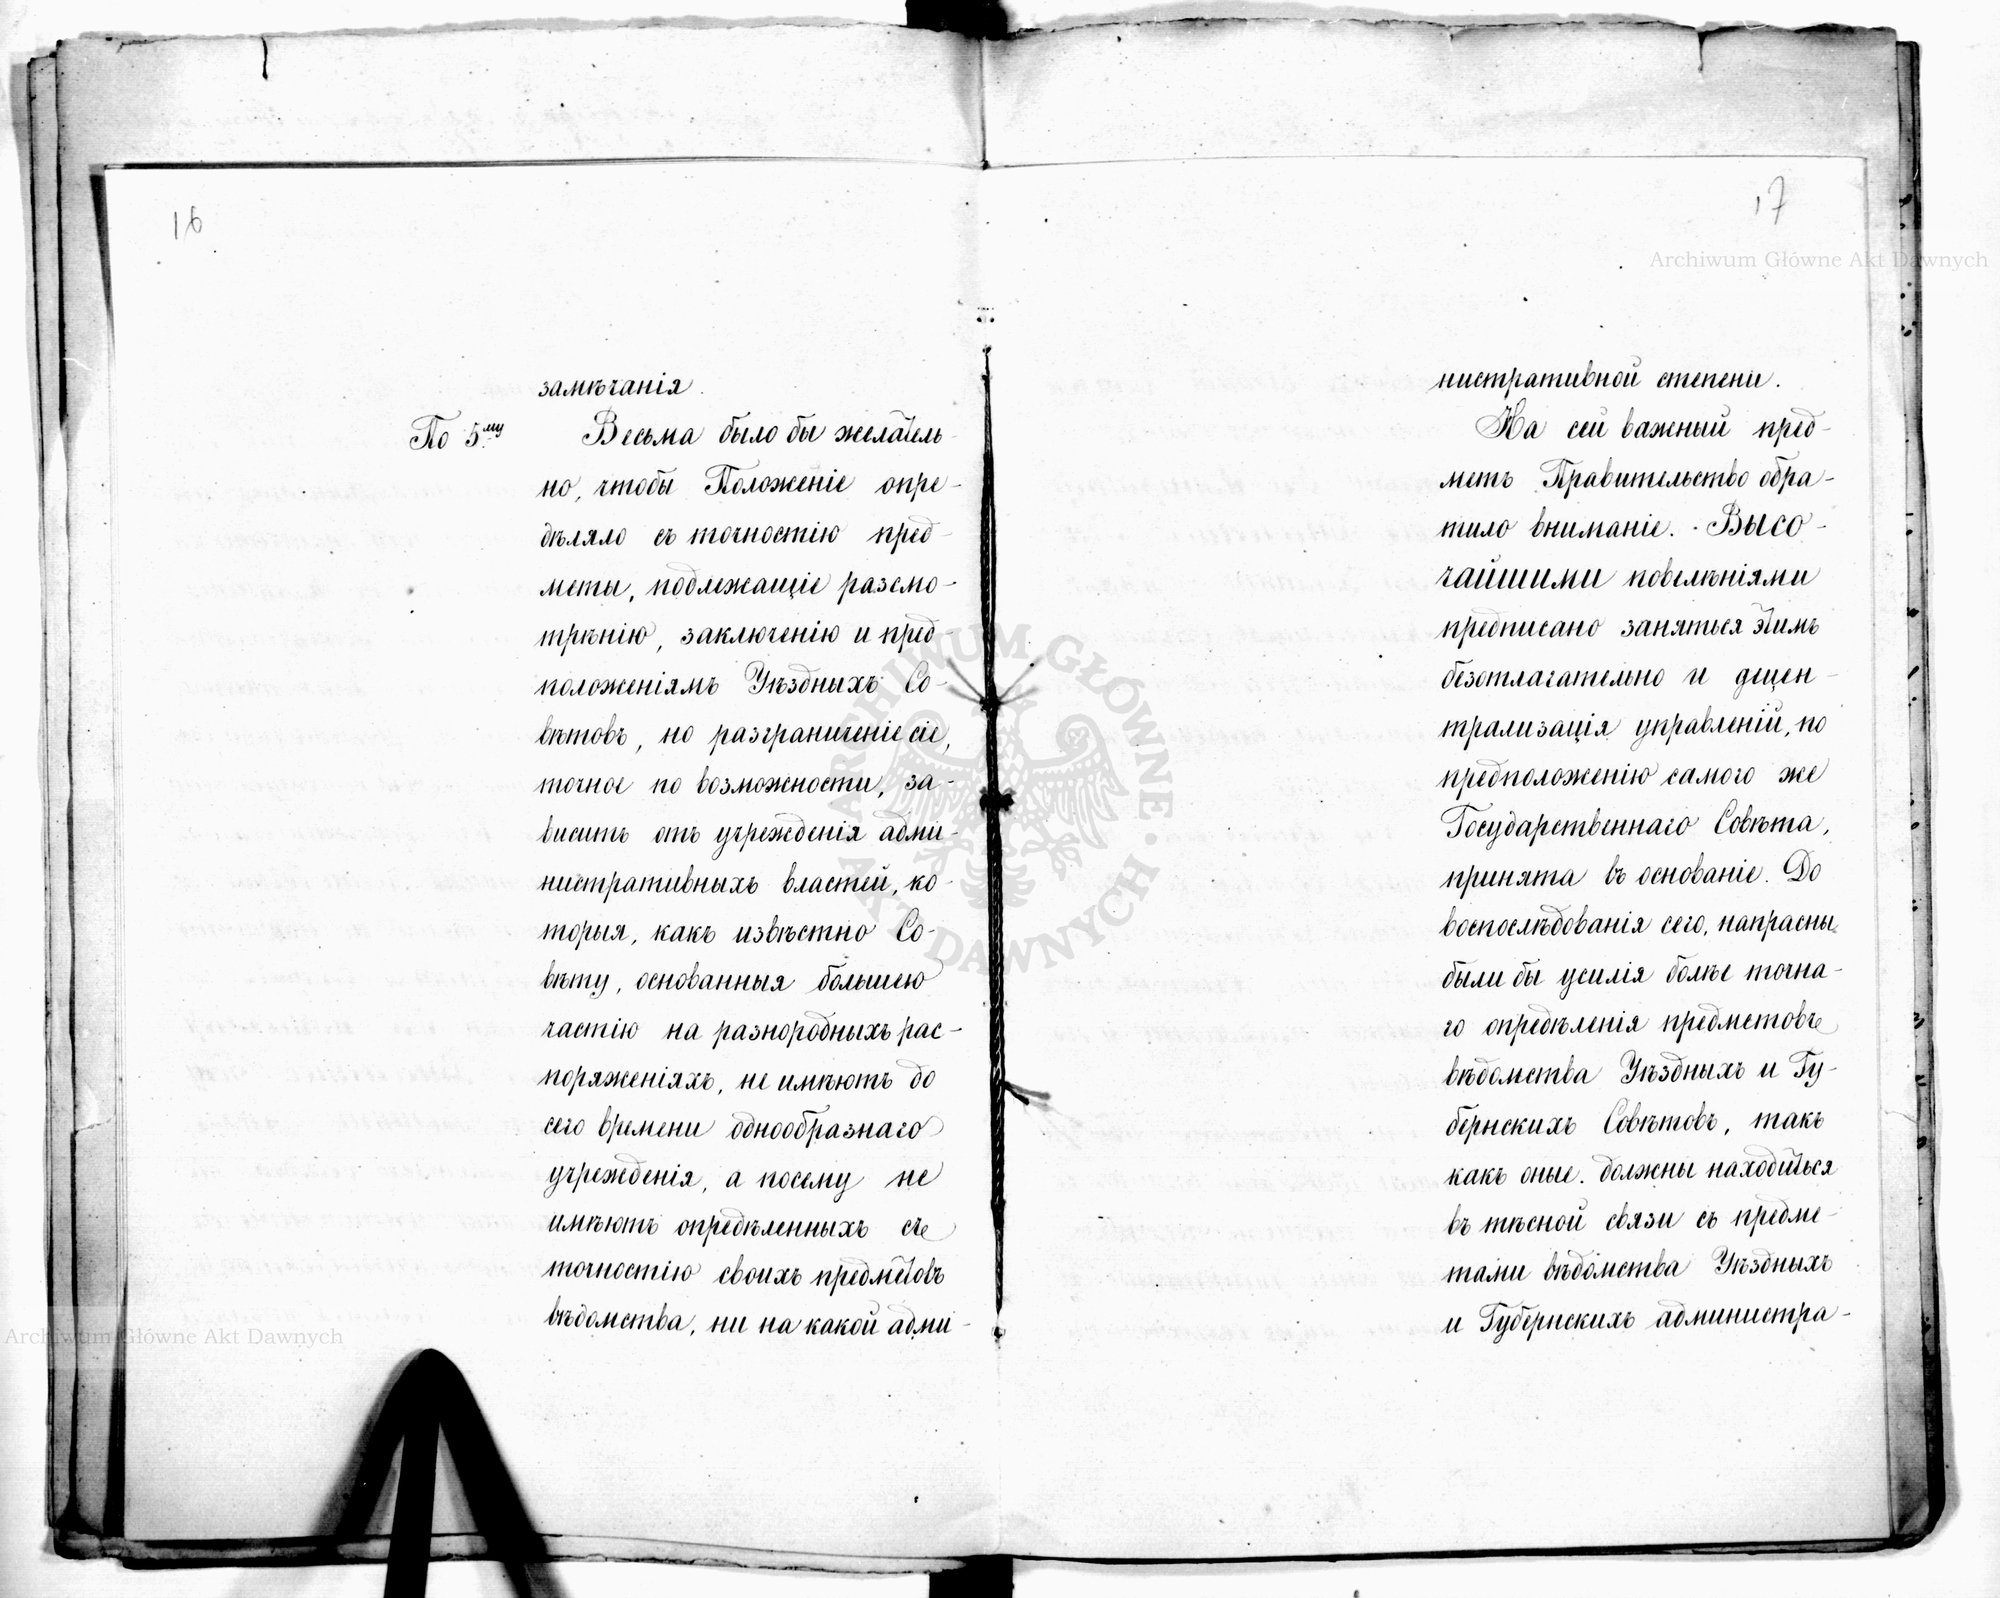 16
замѣчанія.
По 5.му Весьма было бы желатель-
но, чтобы Положеніе опре-
дѣляло съ точностію пред-
меты, подлежащіе разсмо-
трѣнію, заключенію и пред-
положеніямъ Уѣздныхъ Со-
вѣтовъ, но разграниченіе сіе,
точное по возможности, за-
виситъ отъ учрежденія адми-
нистративныхъ властей, ко-
торыя, какъ извѣстно Со-
вѣту, основанныя большею
частію на разнородныхъ рас-
поряженіяхъ, не имѣютъ до
сего времени однообразнаго
учрежденія, а посему не
имѣютъ опредѣленныхъ съ
точностію своихъ предметовъ
вѣдомства, ни на какой адми-
17
нистративной степени.
На сей важный пред-
метъ Правительство обра-
тило вниманіе. Высо-
чайшими повелѣніями
предписано заняться этимъ
безотлагательно и децен-
трализація управленій, по
предположенію самого же
Государственнаго Совѣта,
принята въ основаніе. До
воспослѣдованія сего, напрасны
были бы усилія болѣе точна-
го опредѣленія предметовъ
вѣдомства Уѣздныхъ и Гу-
бернскихъ Совѣтовъ, такъ
какъ оные должны находиться
въ тѣсной связи съ предме-
тами вѣдомства Уѣздныхъ
и Губернскихъ администра-
Archiwum Główne Akt Dawnych
Archiwum Główne Akt Dawnych
ARCHIWUM GŁÓWNE · AKT DAWNYCH ·